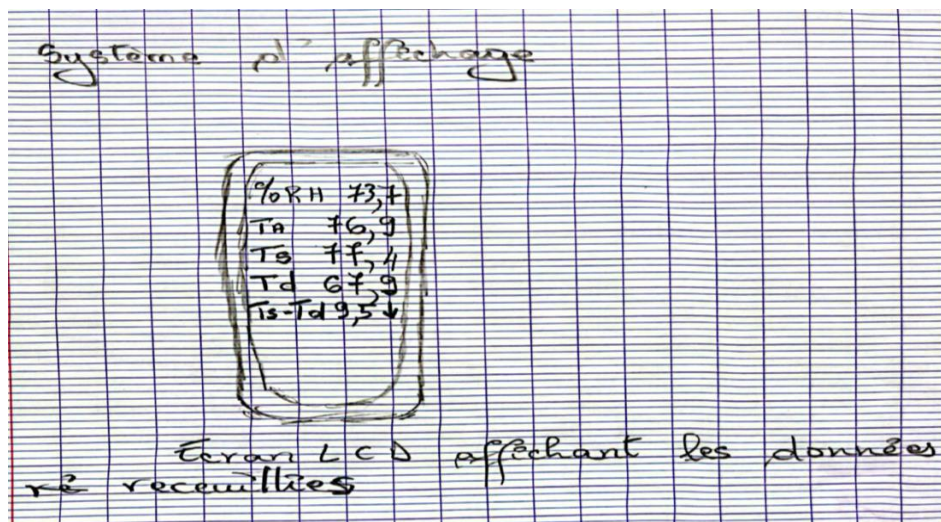 Système d'affichage
%RH 73,7
TA 76,9
Ts 77,4
Td 67,9
Ts-Td 9,5 ↓
Écran LCD affichant les données
receuillies